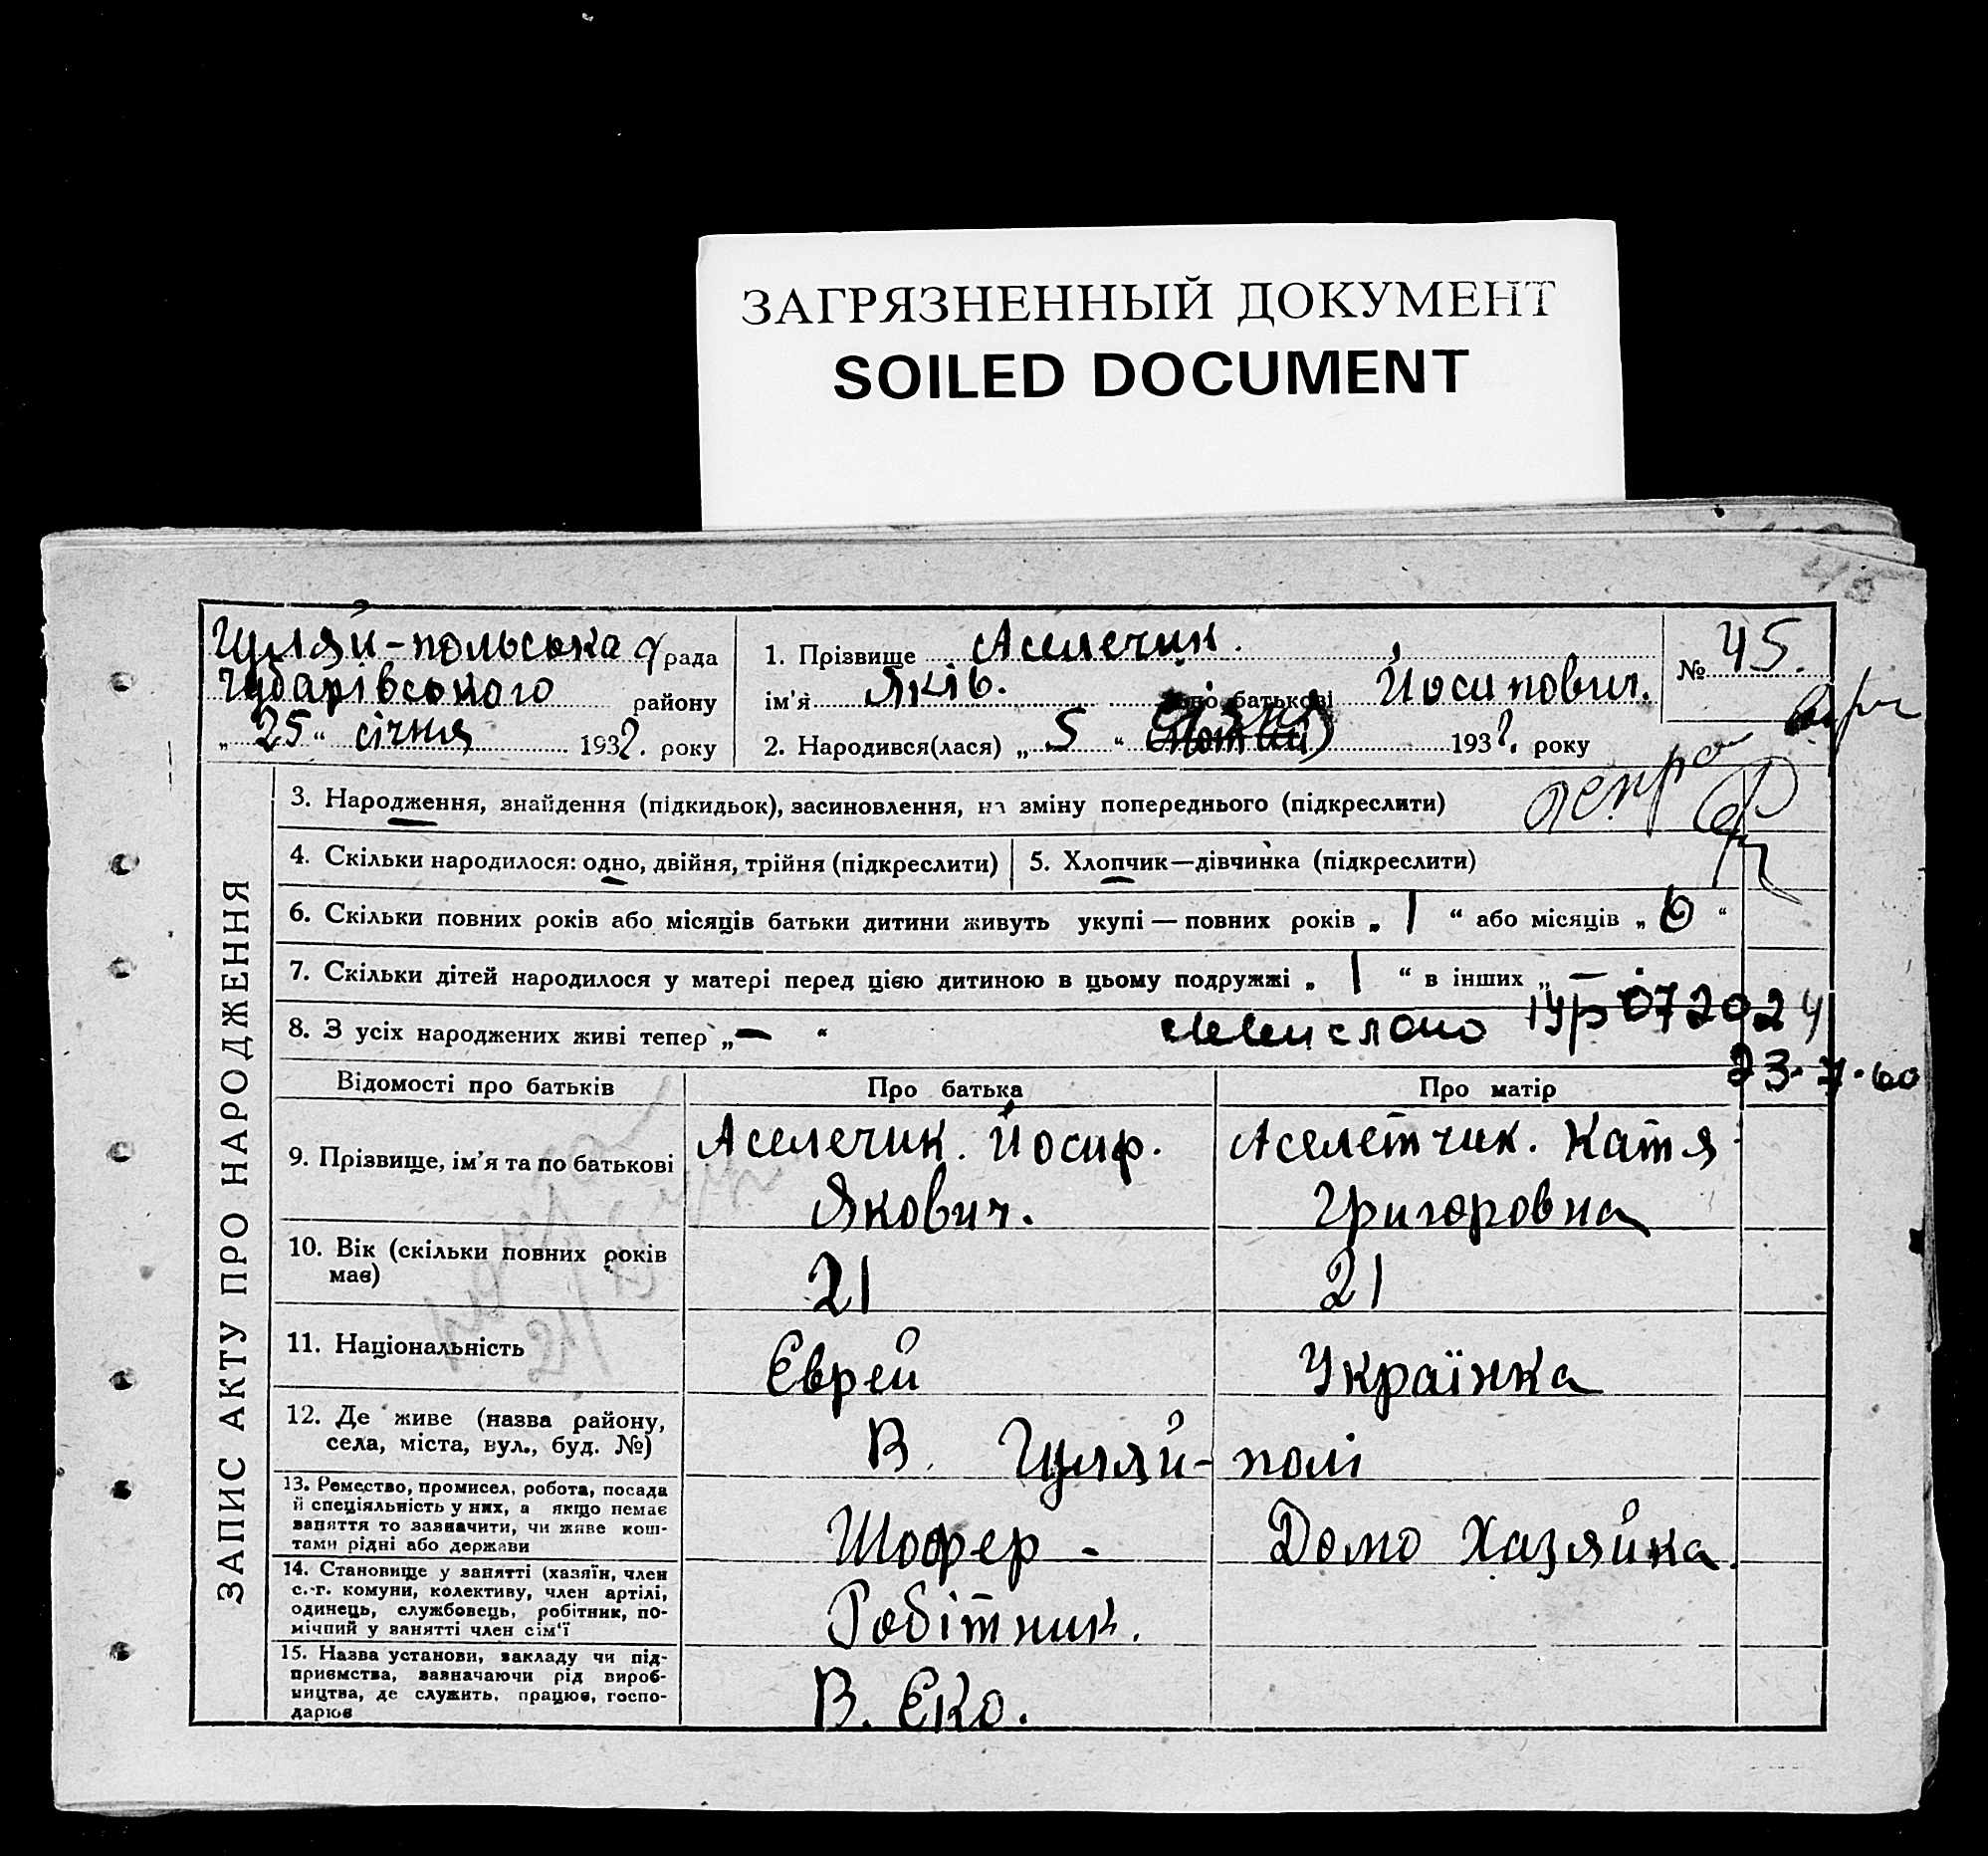 ЗАГРЯЗНЕННЫЙ ДОКУМЕНТ
SOILED DOCUMENT
Гуляй-польська рада
Чубарівського району
„25“ січня 1932. року
1. Прізвище Аселечик.
ім'я Яків. по батькові Йосипович.
2. Народився(лася) „5“ 1932. року
№ 45.
ЗАПИС АКТУ ПРО НАРОДЖЕННЯ
3. Народження, знайдення (підкидьок), засиновлення, на зміну попереднього (підкреслити)
4. Скільки народилося: одно, двійня, трійня (підкреслити)
5. Хлопчик—дівчинка (підкреслити)
6. Скільки повних років або місяців батьки дитини живуть укупі — повних років „1“ або місяців „6“
7. Скільки дітей народилося у матері перед цією дитиною в цьому подружжі „1“ в інших „—
8. З усіх народжених живі тепер „—“
072024
23.7.60
Відомості про батьків
Про батька
Про матір
9. Прізвище, ім'я та по батькові
Аселечик. Йосиф.
Якович.
Аселетчик. Катя
Григоровна
10. Вік (скільки повних років
має)
21
21
11. Національність
Єврей
Українка
12. Де живе (назва району,
села, міста, вул., буд. №)
В. Гуляй-полі
13. Ремество, промисел, робота, посада
й спеціяльність у них, а якщо немає
заняття то зазначити, чи живе кош-
тами рідні або держави
Шофер -
Домо Хазяйка.
14. Становище у занятті (хазяїн, член
с.-г. комуни, колективу, член артілі,
одинець, службовець, робітник, по-
мічний у занятті член сім'ї
Робітник.
15. Назва установи, закладу чи під-
приємства, зазначаючи рід вироб-
ництва, де служить, працює, госпо-
дарює
В. Єко.